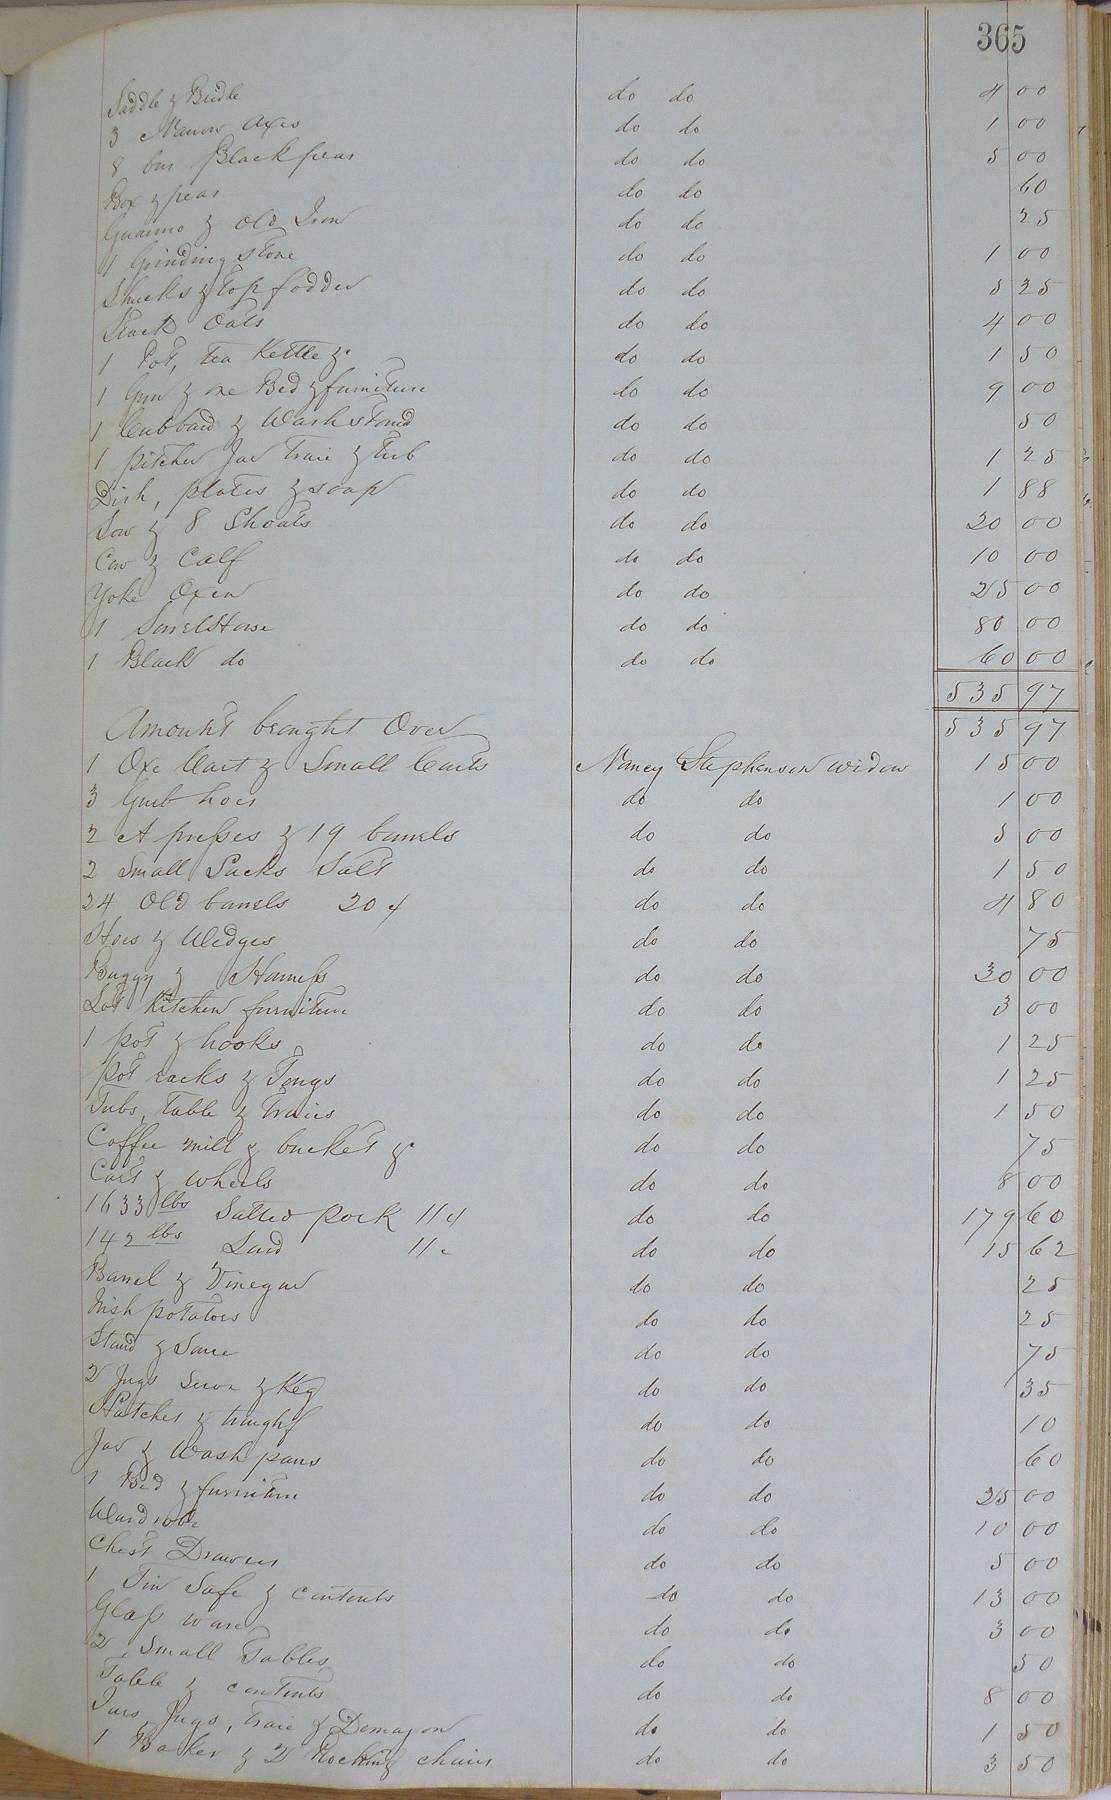 365
Saddle & Bridle do do 4 00
3 Narrow Axes do do 1 00
8 bus Black peas do do 5 00
Box & peas do do 60
Guanno & Old Iron do do 25
1 Grinding stone do do 1 00
Shucks & Top fodder do do 5 25
Stack Oats do do 4 00
1 Pot, tea Kettle &c do do 1 50
1 Gun & one Bed & furniture do do 9 00
1 Cubbard & Wash stand do do 50
1 pitcher Jar Traie & Tub do do 1 25
Dish, plates & soap do do 1 88
Sow & 8 Shoats do do 20 00
Cow & Calf do do 10 00
Yoke Oxen do do 25 00
1 Sorrel Horse do do 80 00
1 Black do do do 60 00
535 97
Amount brought Over 535 97
1 Oxe Cart & Small Carts Nancy Stephenson widow 15 00
3 Grub hoes do do 1 00
2 presses & 19 barrels do do 5 00
2 Small Sacks Salt do do 1 50
24 Old barrels 20 c do do 4 80
Hoes & Wedges do do 75
Buggy & Harness do do 30 00
Lot Kitchen furniture do do 3 00
1 pot & hooks do do 1 25
pot racks & Tongs do do 1 25
Tubs, Table & Traies do do 1 50
Coffee mill & bucket &c do do 75
Cart & wheels do do 8 00
1633 lbs Salted pork 11 c do do 179 60
142 lbs Lard 11 c do do 15 62
Barrel & Vinegar do do 25
Irish potatoes do do 25
Stand & do do 75
2 Jugs & Keg do do 35
Hatchet & trough do do 10
Jar & Wash pans do do 60
1 Bed & furniture do do 25 00
Wardrobe do do 10 00
Chest Drawers do do 5 00
1 Tin Safe & contents do do 13 00
Glass ware do do 3 00
2 Small Tables do do 50
Table & contents do do 8 00
Jars, Jugs, Traie & Demajon do do 1 50
1 Baker & 2 Rocking chairs do do 3 50